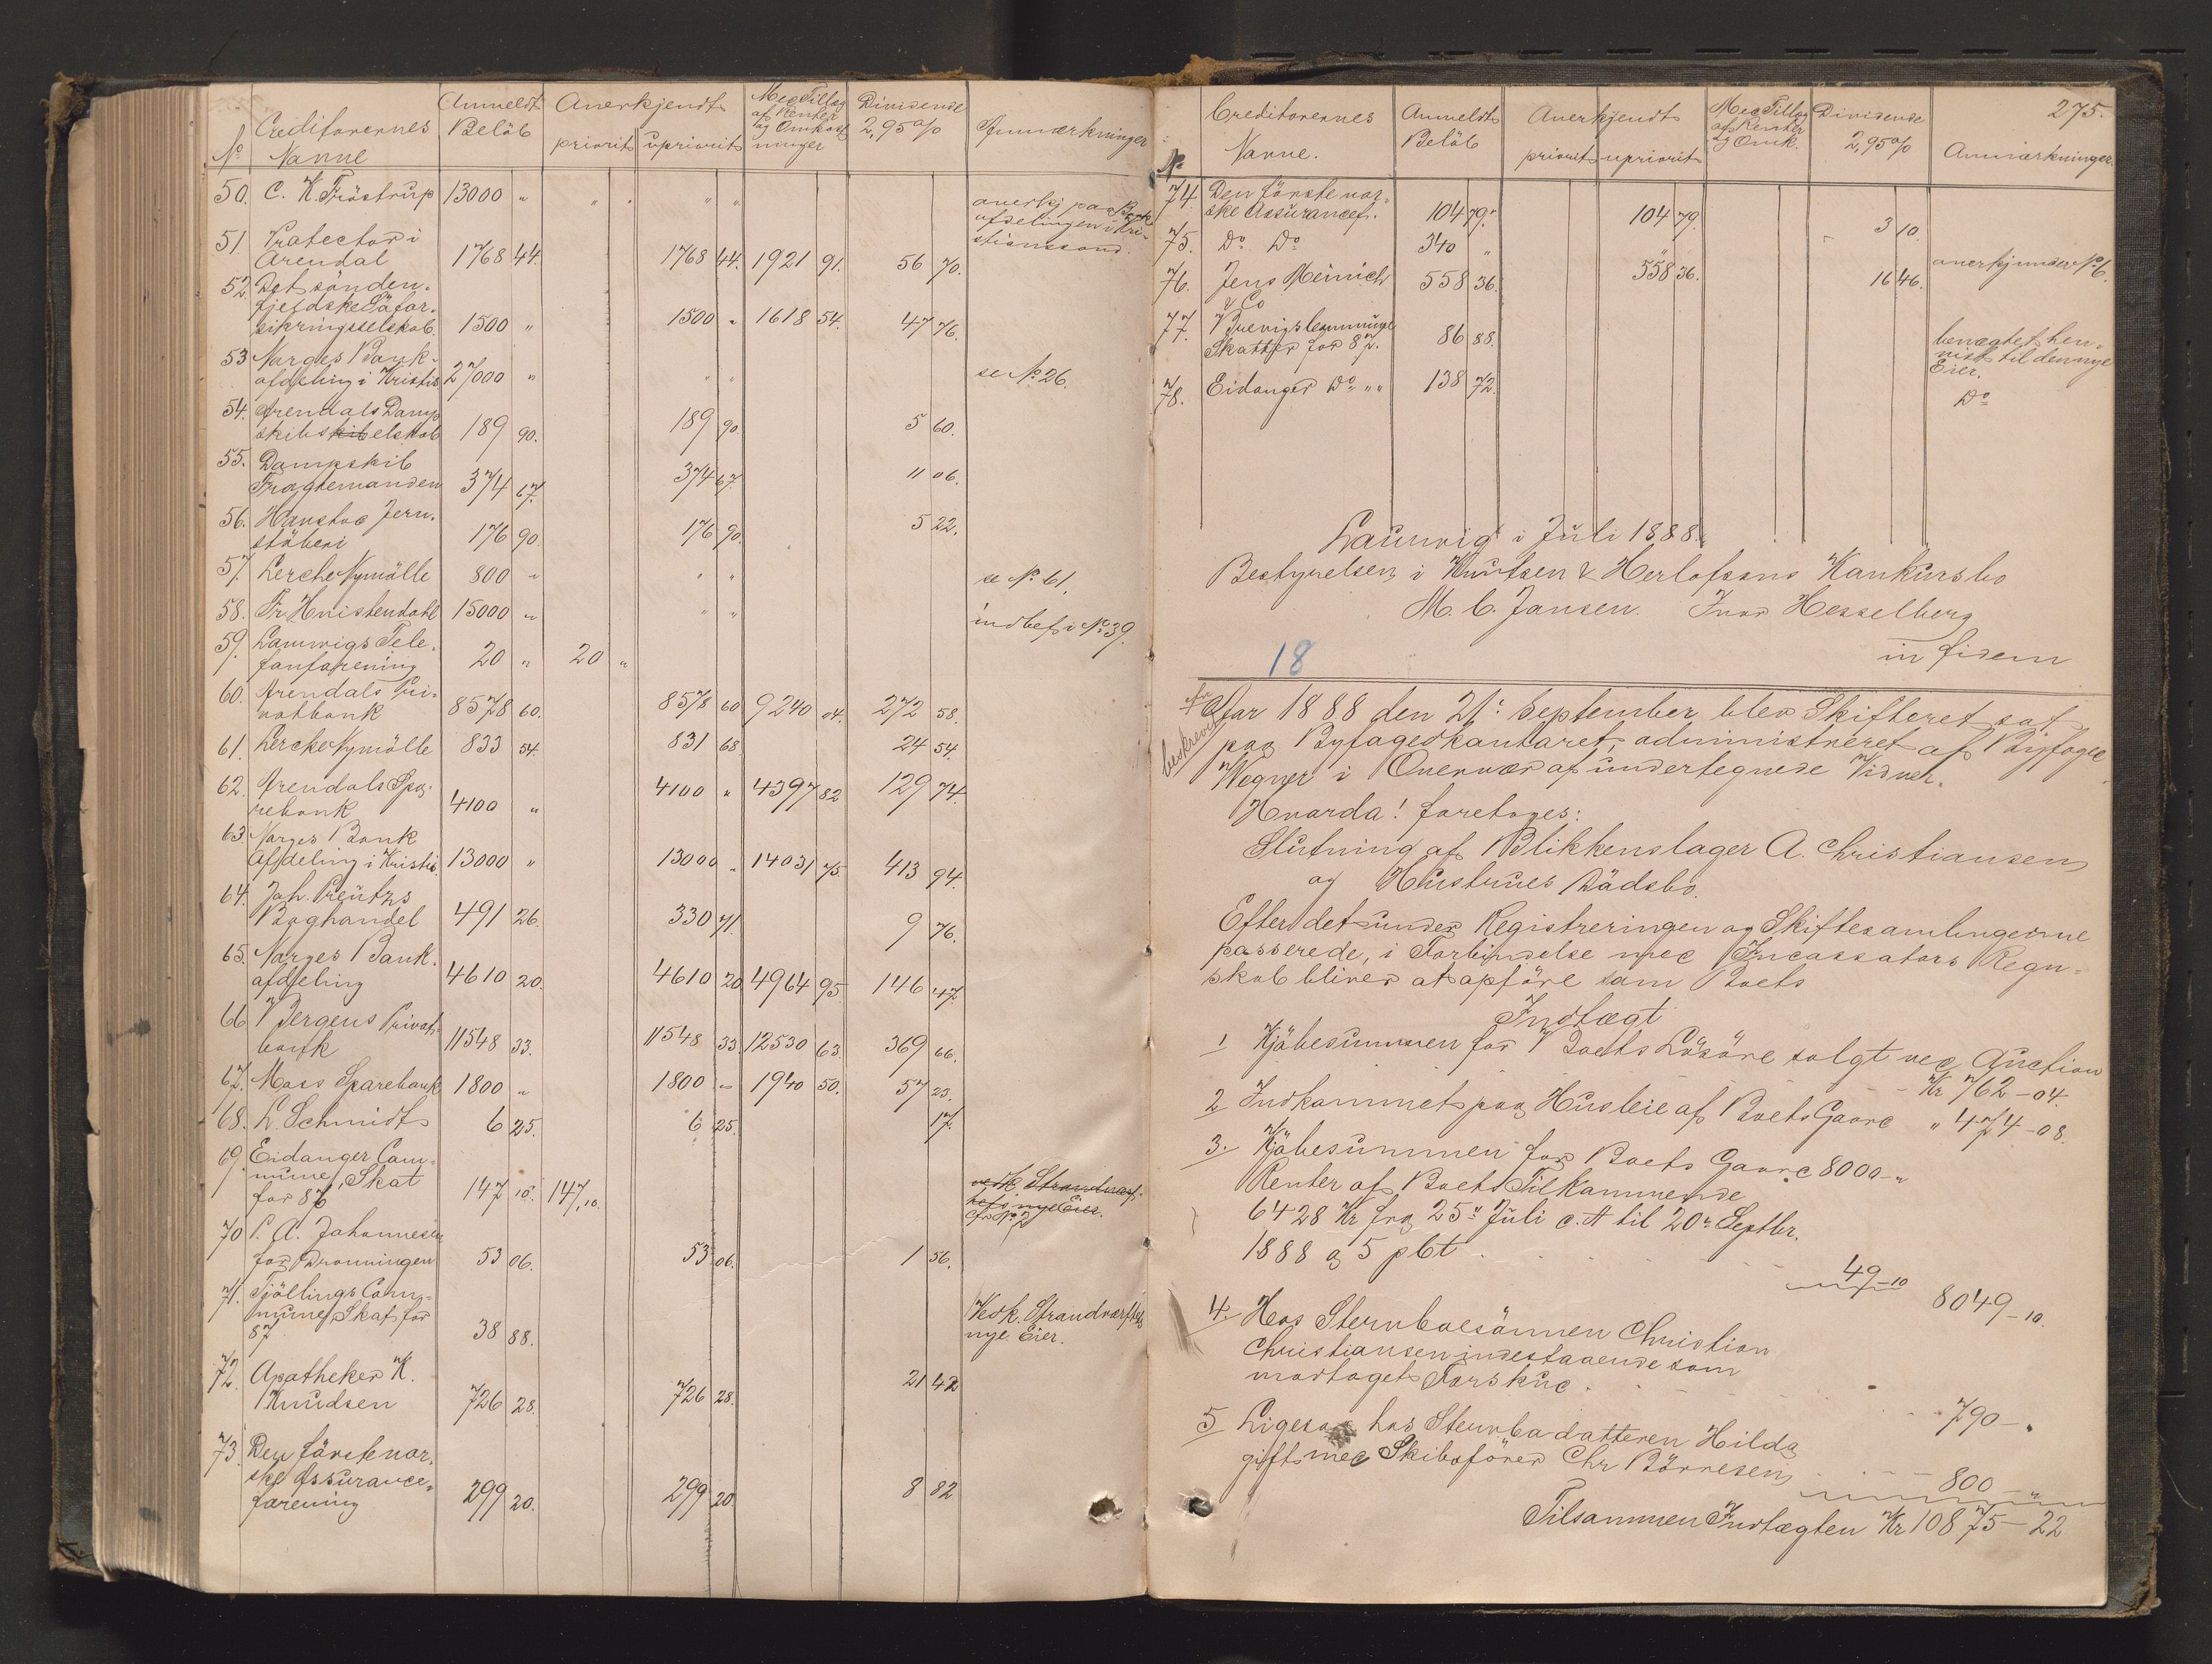 No Creditorernes Navne Anmeldt Beløb Anerkjendt priorit. upriorit. Med Tillæg af Renter og Omkostninger Dividende 2,95 % Anmærkninger
50. C. K. Fröstrup 13000 " " " " " anerkj. paa Bankafdelingen i Kristianssand.
51. Protector i
Arendal 1768 44. 1768 44. 1921 91. 56 70.
52. Det sönden-
fjeldske Söfor-
sikringsselskab 1500 " 1500 " 1618 54. 47 76.
53 Norges Bank-
afdeling i Kristis 27000 " " " se No 26.
54. Arendals Damp
skibsselskab 189 90. 189 90. 5 60.
55. Dampskib
Fragtemanden 374 67. 374 67. 11 06.
56. Hanstoe Jern-
stöberi 176 90. 176 90. 5 22.
57. Lerche Nymölle 800 " " " se No 61.
58. Fr. Hvistendahl 15000 " " " indbef. i No 39.
59. Laurvigs Tele-
fonforening 20 " 20 "
60. Arendals Pri-
vatbank 8578 60. 8578 60 9240 04. 272 58.
61. Lerche Nymölle 833 54. 831 68. 24 54.
62. Arendals Spa-
rebank 4100 " 4100 " 4397 82 129 74.
63. Norges Bank
Afdeling i Kristis. 13000 " 13000 " 14031 75. 413 94.
64. Joh.
Boghandel 491 26. 330 71. 9 76.
65. Norges Bank-
afdeling 4610 20. 4610 20 4964 95. 146 47.
66 Bergens Privat-
bank 11548 33. 11548 33. 12530 63. 369 66.
67. Moss Sparebank 1800 " 1800 " 1940 50. 57 23.
68. L. Schmidt 6 25. 6 25. 17.
69. Eidanger Com-
mune, Skat
for 87 147 10. 147,10. vedk. Strandværf-
tets nye Eier.
cfr No 7
70 P. A. Johannesen
for Dronningen 53 06. 53 06. 1 56.
71. Tjöllings Com-
mune, Skat for
87 38 88. Vedk. Strandværftets
nye Eier.
72. Apotheker K.
Knudsen 726 28. 726 28. 21 42
73. Den förstenor-
ske Assurance-
forening 299 20. 299 20. 8 82
275.
No. Creditorernes Navne. Anmeldt Beløb Anerkjendt priorit. upriorit. Med Tillæg af Renter og Omk. Dividende 2,95 % Anmærkninger.
74. Den förstenor-
ske Assurancef. 104 79. 104 79. 3 10.
75. Do Do 340 " " anerkj. under No 6.
76. Jens Meinich
& Co 558 36. 558 36. 16 46.
77. Brevigs Commune
Skatter for 87. 86 88. benægtet hen-
vist til den nye
Eier.
78. Eidanger Do " " 138 72. Do
Laurvig i Juli 1888.
Bestyrelsen i Knutsen & Herlofsens Konkursbo
M. C. Jansen. Ivar Hesselberg
in fidem
18
beskrevet
Aar 1888 den 21: September blev Skifteret sat
paa Byfogedkontoret, administreret af Byfoged
Wegner i Overvær af undertegnede Vidner.
Hvorda! foretoges:
Slutning af Blikkenslager A. Christiansen
og Hustrues Dödsbo.
Efter det under Registreringen og Skiftesamlingerne
passerede, i Forbindelse med Incassators Regn-
skab bliver at opføre som Boets
Indtægt
1 Kjöbesummen for Boets Lösöre solgt ved Auction
Kr 762-04.
2 Indkommet paa Husleie af Boets Gaard " 474-08.
3. Kjöbesummen for Boets Gaard 8000-"
Renter af Boets Tilkommende
6428 Kr fra 25" Juli c. A til 20" Septbr.
1888 a 5 pCt . . . 49-10 8049-10.
4. Hos Stervboesönnen Christian
Christiansen indestaaende som
modtaget Forskud . . . 790-"
5 Ligesaa hos Stervbodatteren Hilda
gift med Skibsförer Chr Börresen . . . 800-"
Tilsammen Indtægten Kr 10875-22